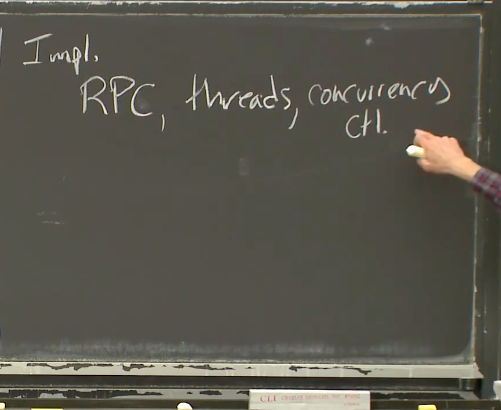 Impl.
RPC, threads, concurrency
ctl.